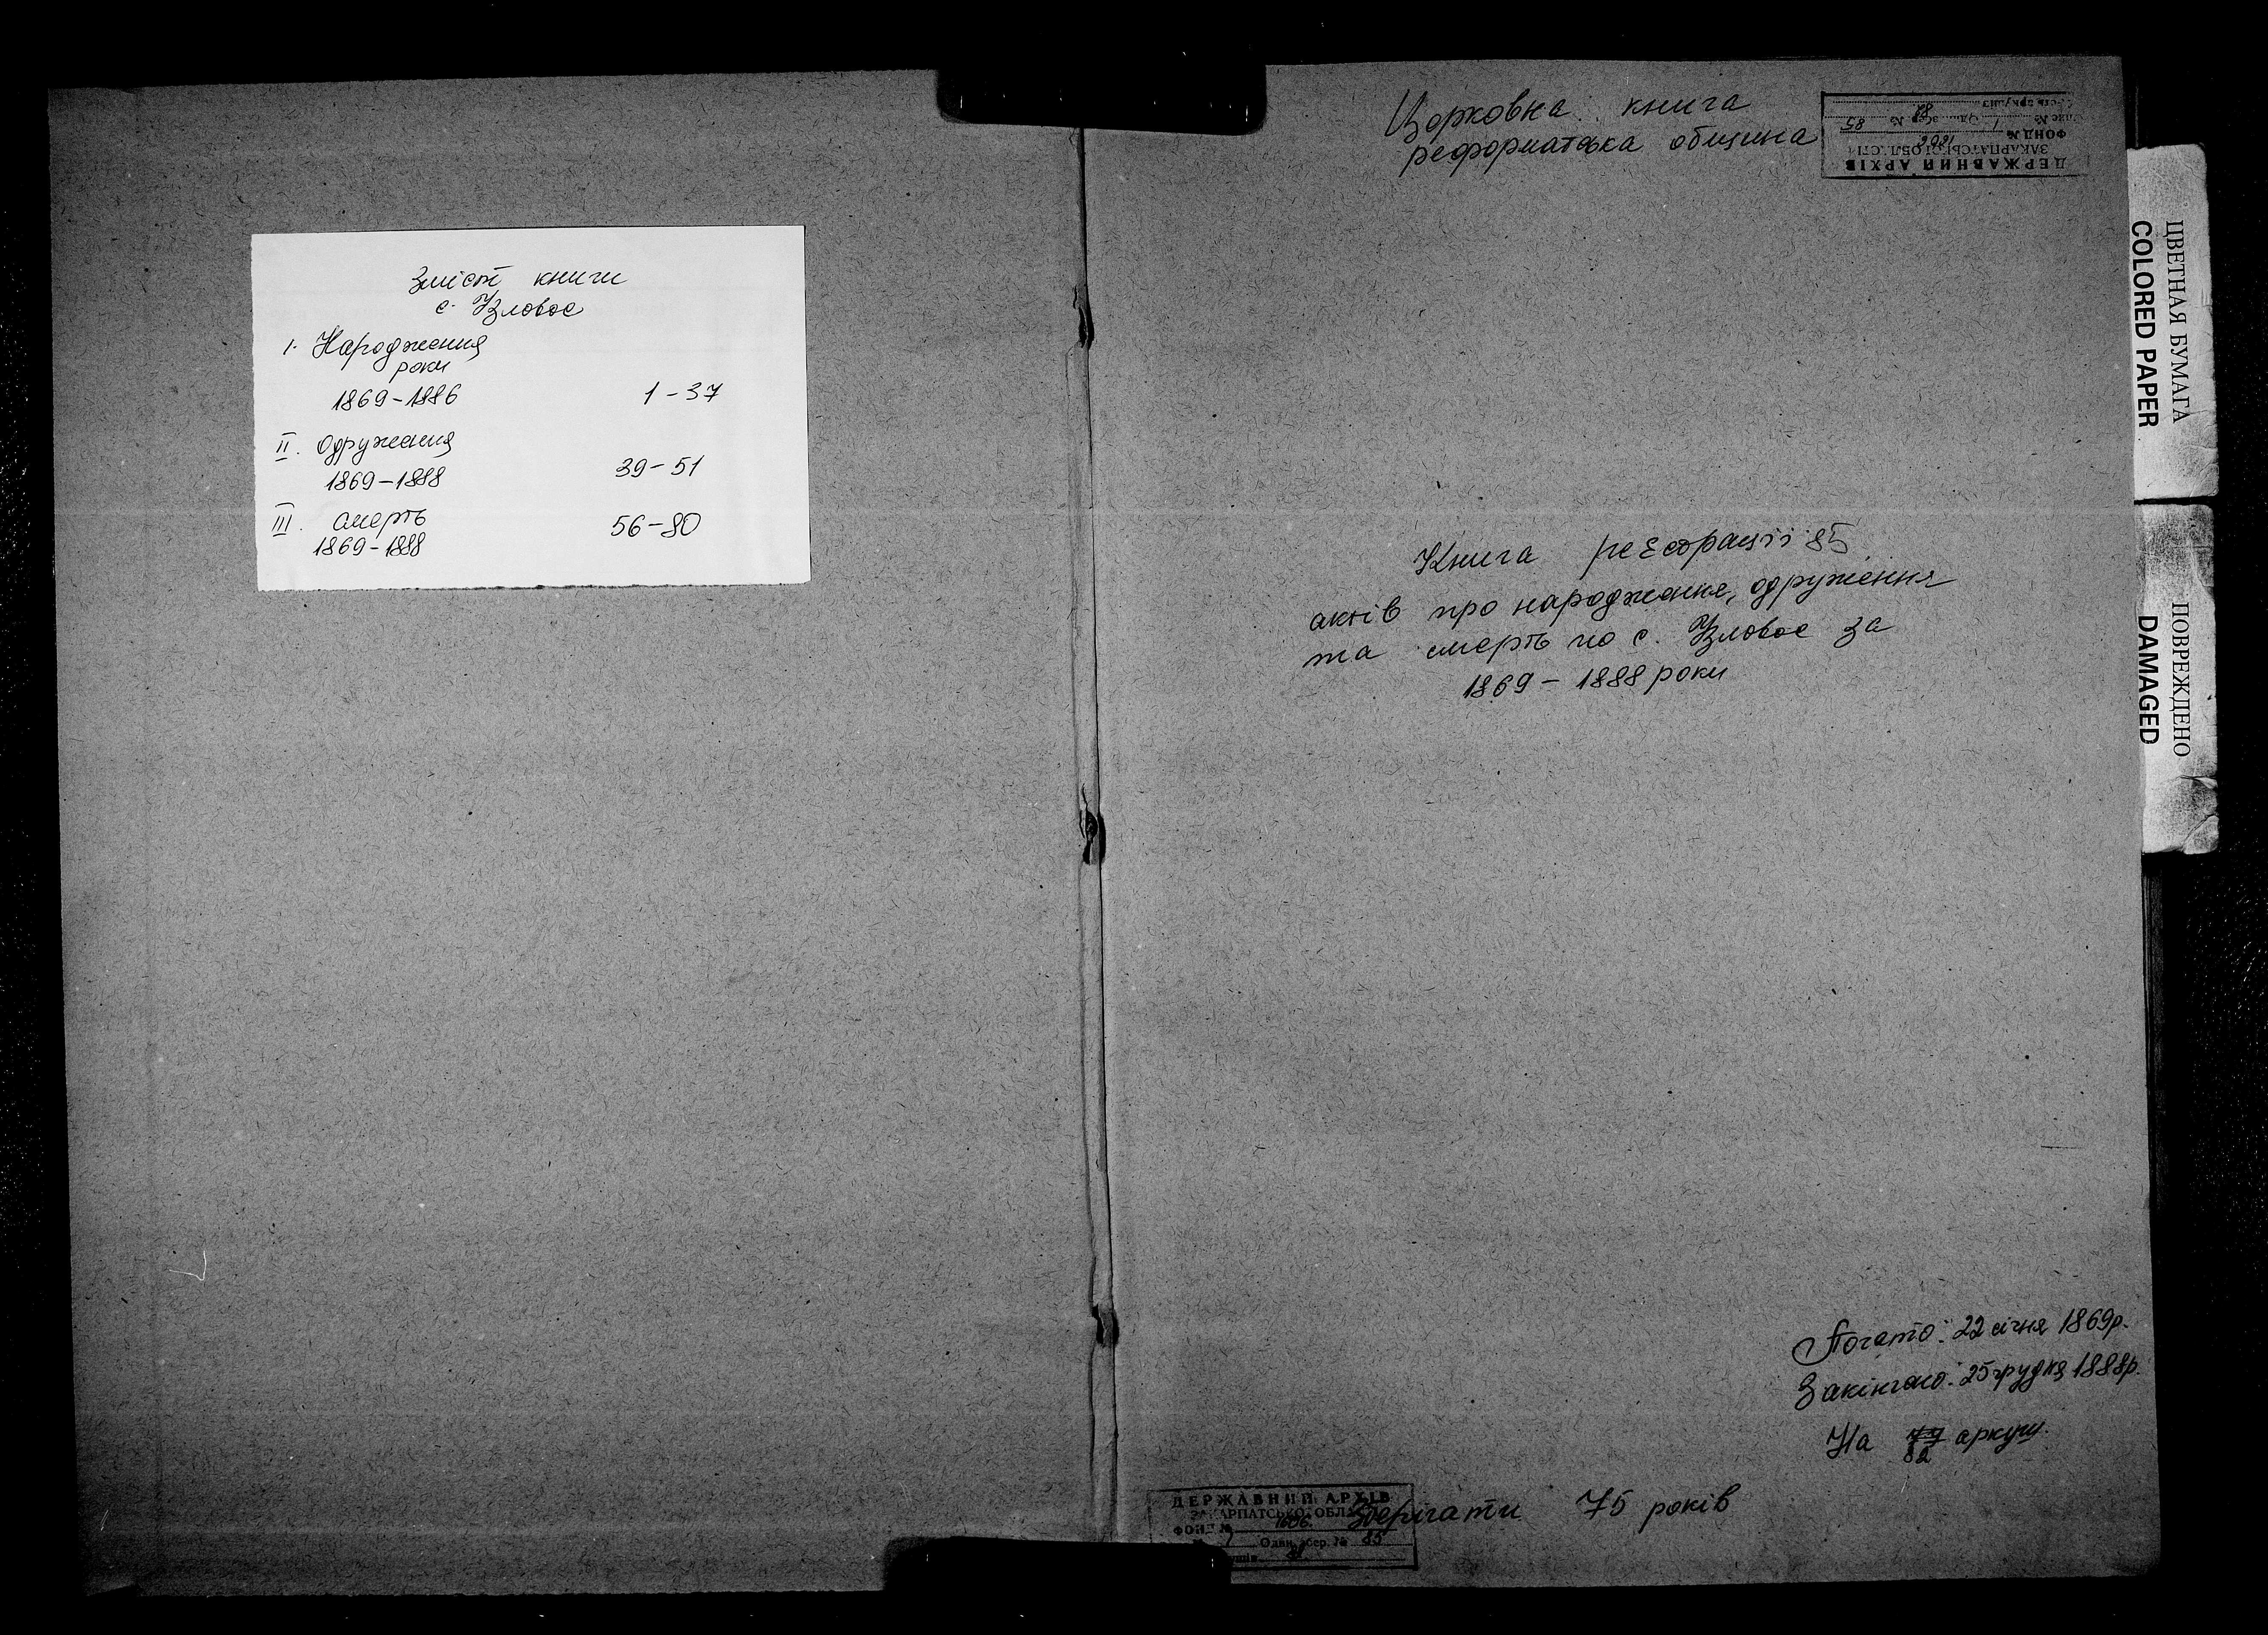 Зміст книги
с. Узлове
I. Народження
роки
1869-1886 1-37
II. Одруження
1869-1888 39-51
III. смерть
1869-1888 56-80
Церковна книга
реформатська община
ДЕРЖАВНИЙ АРХІВ
ЗАКАРПАТСЬКОЇ ОБЛАСТІ
ФОНД № 1606
Опис № 1 Од. збер. № 85
Книга реєстрації 85
актів про народження, одруження
та смерть по с. Узлове за
1869-1888 роки
ЦВЕТНАЯ БУМАГА
COLORED PAPER
ПОВРЕЖДЕНО
DAMAGED
Почато: 22 січня 1869р.
Закінчено: 25 грудня 1888р.
На 77 аркуш.
82
Зберігати 75 років
ДЕРЖАВНИЙ АРХІВ
ЗАКАРПАТСЬКОЇ ОБЛ
ФОНД № 1606
Один. збер. № 85